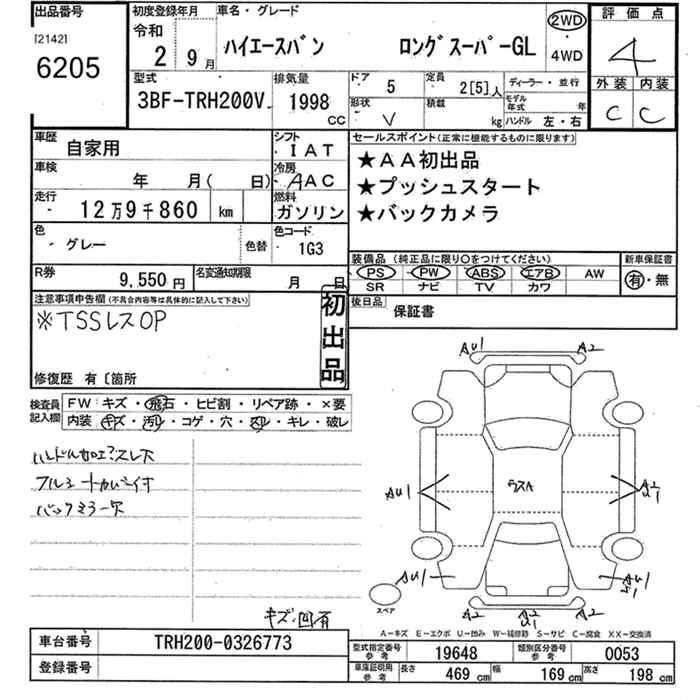 出品番号
[2142]
6205
初度登録年月
令和
2 9月
車名・グレード
ハイエースバン ロングスーパーGL
2WD
・
4WD
評価点
4
外装 内装
C C
型式
3BF-TRH200V
排気量
1998
CC
ドア 5
形状 V
定員 2[5]人
積載 kg
ディーラー・並行
モデル年式 年
ハンドル 左・右
車歴 自家用
シフト
・IAT
車検
年 月( 日)
冷房
・AAC
走行
・12万9千860 km
燃料
ガソリン
色
・グレー
色替
色コード
1G3
R券 9,550円
名変通知期限 月 日
セールスポイント(正常に機能するものに限ります)
★AA初出品
★プッシュスタート
★バックカメラ
装備品 (純正品に限り○をつけてください)
PS PW ABS エアB AW
SR ナビ TV カワ
新車保証書
有・無
後日品
保証書
注意事項申告欄(不具合内容等は具体的に記入して下さい)
※TSSレスOP
初出品
修復歴 有〔箇所
検査員記入欄
FW: キズ・飛石・ヒビ割・リペア跡・×要
内装: キズ・汚レ・コゲ・穴・スレ・キレ・破レ
バックミラー欠
キズ・凹有
AU1 A2
AU1
ラスA
A2
U1
AU1
AU1
S1
スペア
A2 A2
U1
A2
A－キズ E－エクボ U－凹み W－補修跡 S－サビ C－腐食 XX－交換済
車台番号 TRH200-0326773
登録番号
型式指定番号
参考
19648
類別区分番号
参考
0053
車庫証明用
参考
長さ 469 cm 幅 169 cm 高さ 198 cm